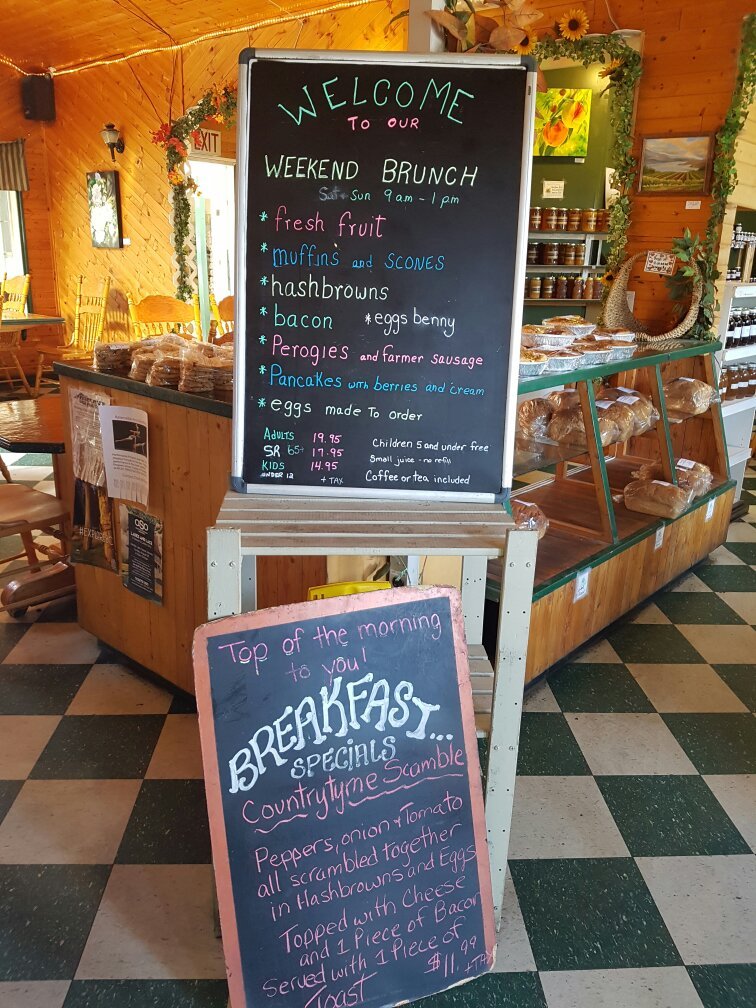 EXIT
WELCOME
TO OUR
WEEKEND BRUNCH
Sat + Sun 9 am - 1 pm
* fresh fruit
* muffins and SCONES
* hashbrowns
* bacon * eggs benny
* Perogies and farmer sausage
* Pancakes with berries and cream
* eggs made To order
ADULTS 19.95
SR 65+ 17.95
KIDS 14.95
UNDER 12
+ TAX
Children 5 and under free
Small juice - no refill
Coffee or tea included
#EXPLORE
Top of the morning
to you!
BREAKFAST...
SPECIALS
Countrytyme Scramble
Peppers, onion + Tomato
all scrambled together
in Hashbrowns and Eggs
Topped with Cheese
and 1 Piece of Bacon
Served with 1 Piece of
Toast
$11.99
+TAX